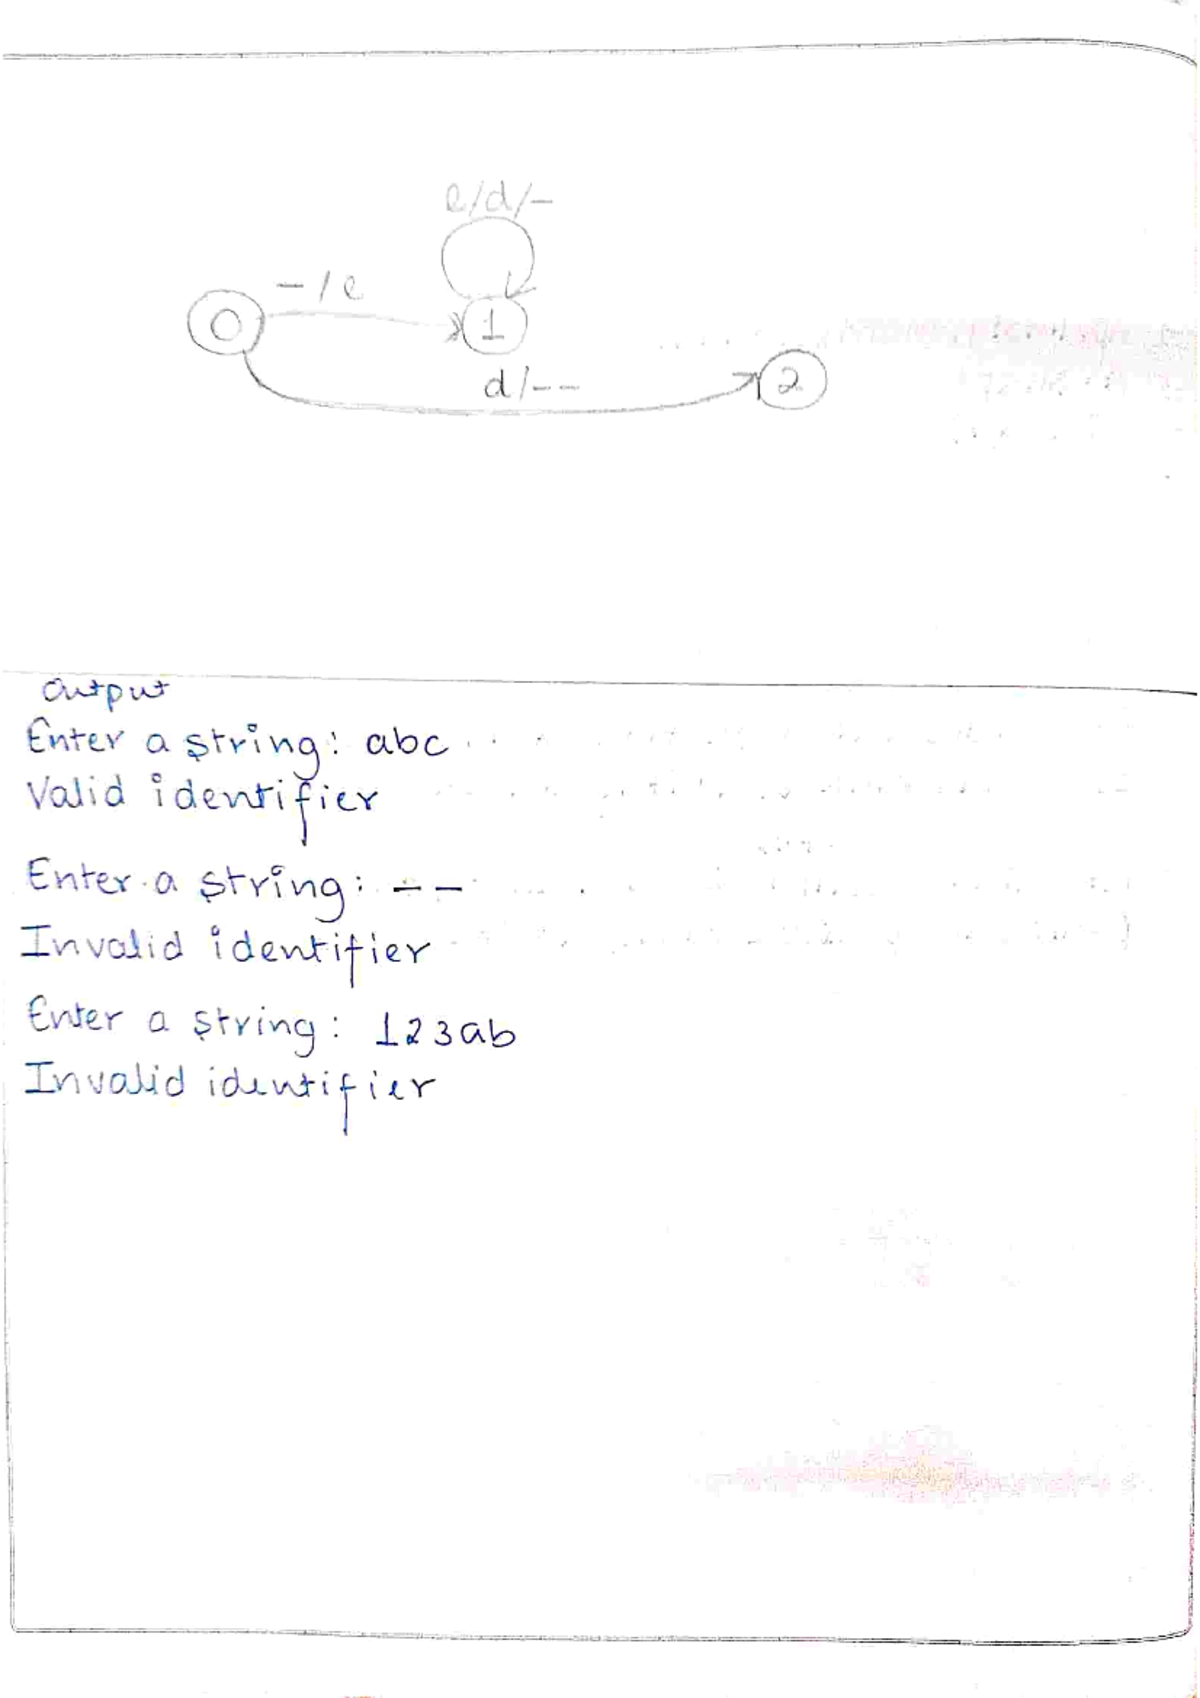 l/d/-
-/l
0
1
2
d/--
Output
Enter a string: abc
Valid identifier
Enter a string: --
Invalid identifier
Enter a string: 123ab
Invalid identifier